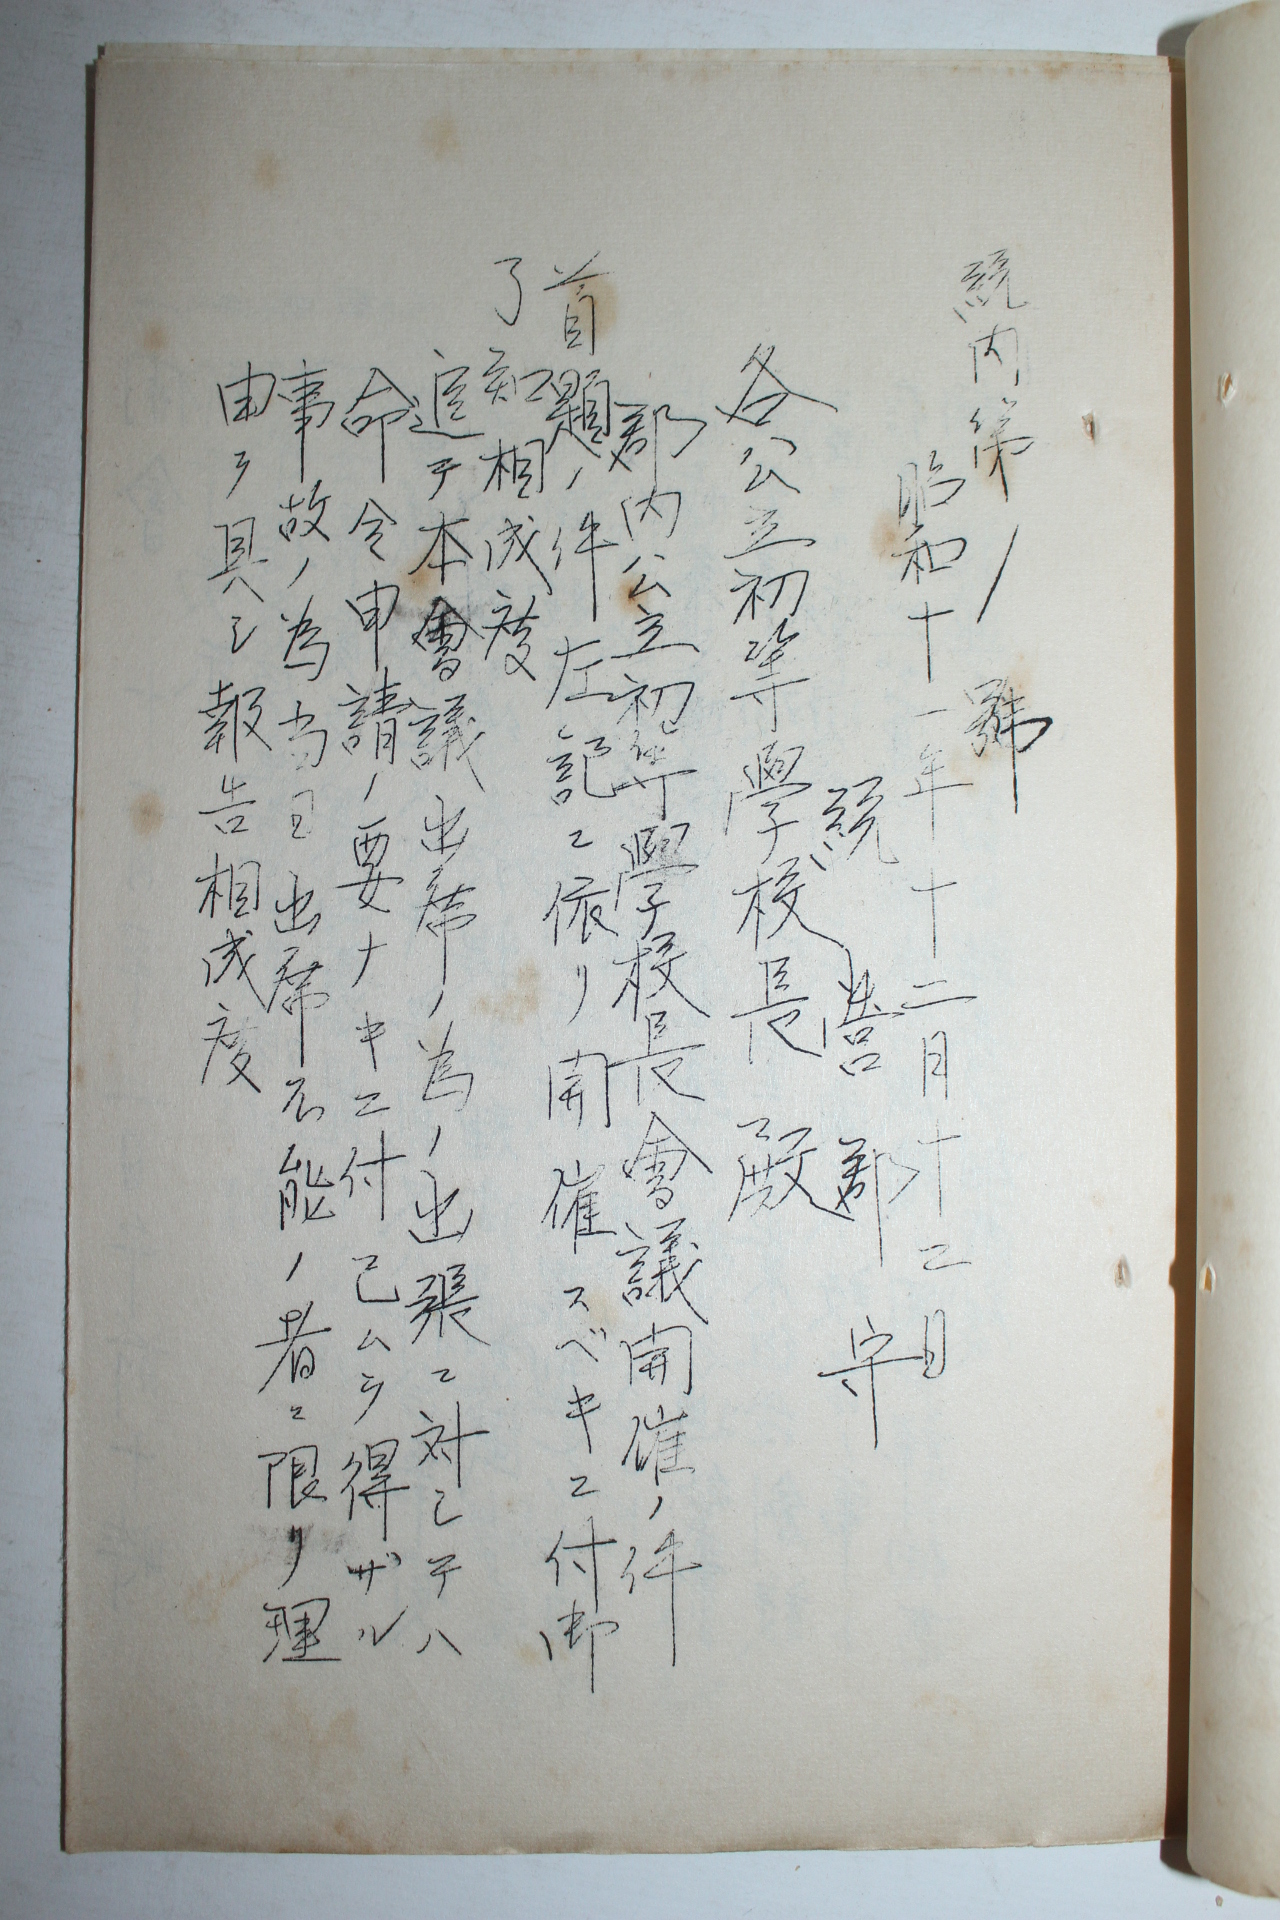 統内第ノ　號
昭和十一年十二月十二日
統營郡守
各公立初等學校長殿
郡內公立初等學校長會議開催ノ件
首題ノ件左記ニ依リ開催スベキニ付御
了知相成度
追テ本會議出席ノ為ノ出張ニ対シテハ
命令申請ノ要ナキニ付已ムヲ得ザル
事故ノ為当日出席不能ノ者ニ限リ理
由ヲ具シ報告相成度